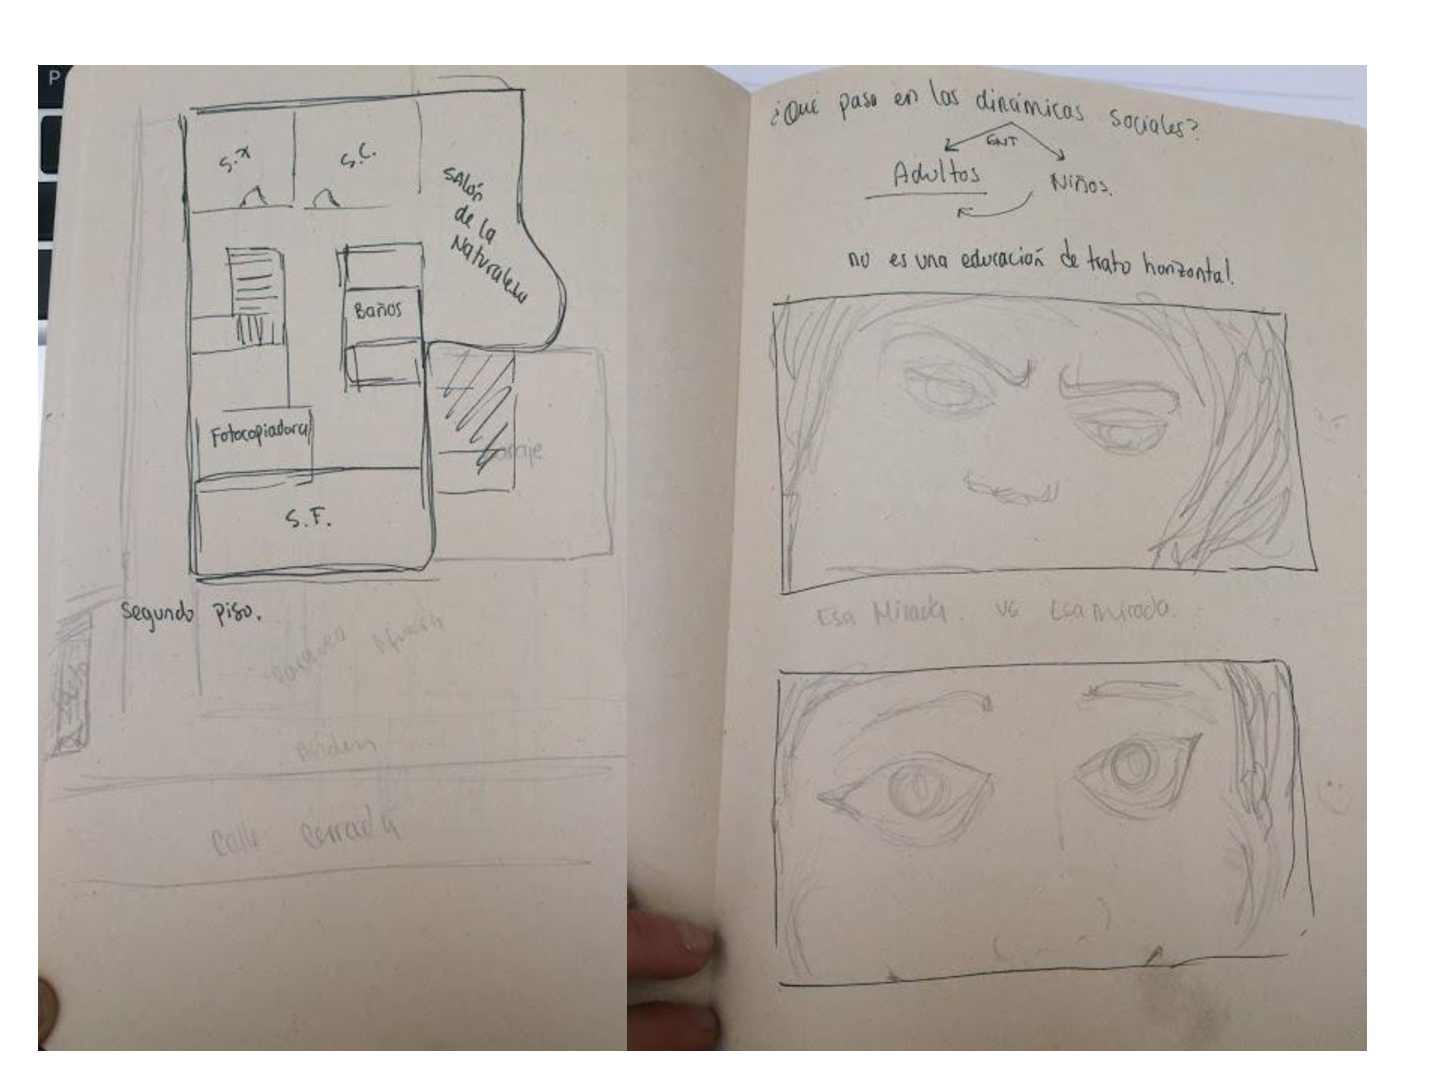 P
S.x
S.C.
Salón
de la
Naturaleza
Baños
Fotocopiadora
Garaje
S.F.
Segundo piso.
Anden
Calle cerrada
¿Qué pasa en las dinámicas sociales?
ENT
Adultos
Niños.
no es una educación de trato horizontal.
Esa Mirada. vs Esa mirada.